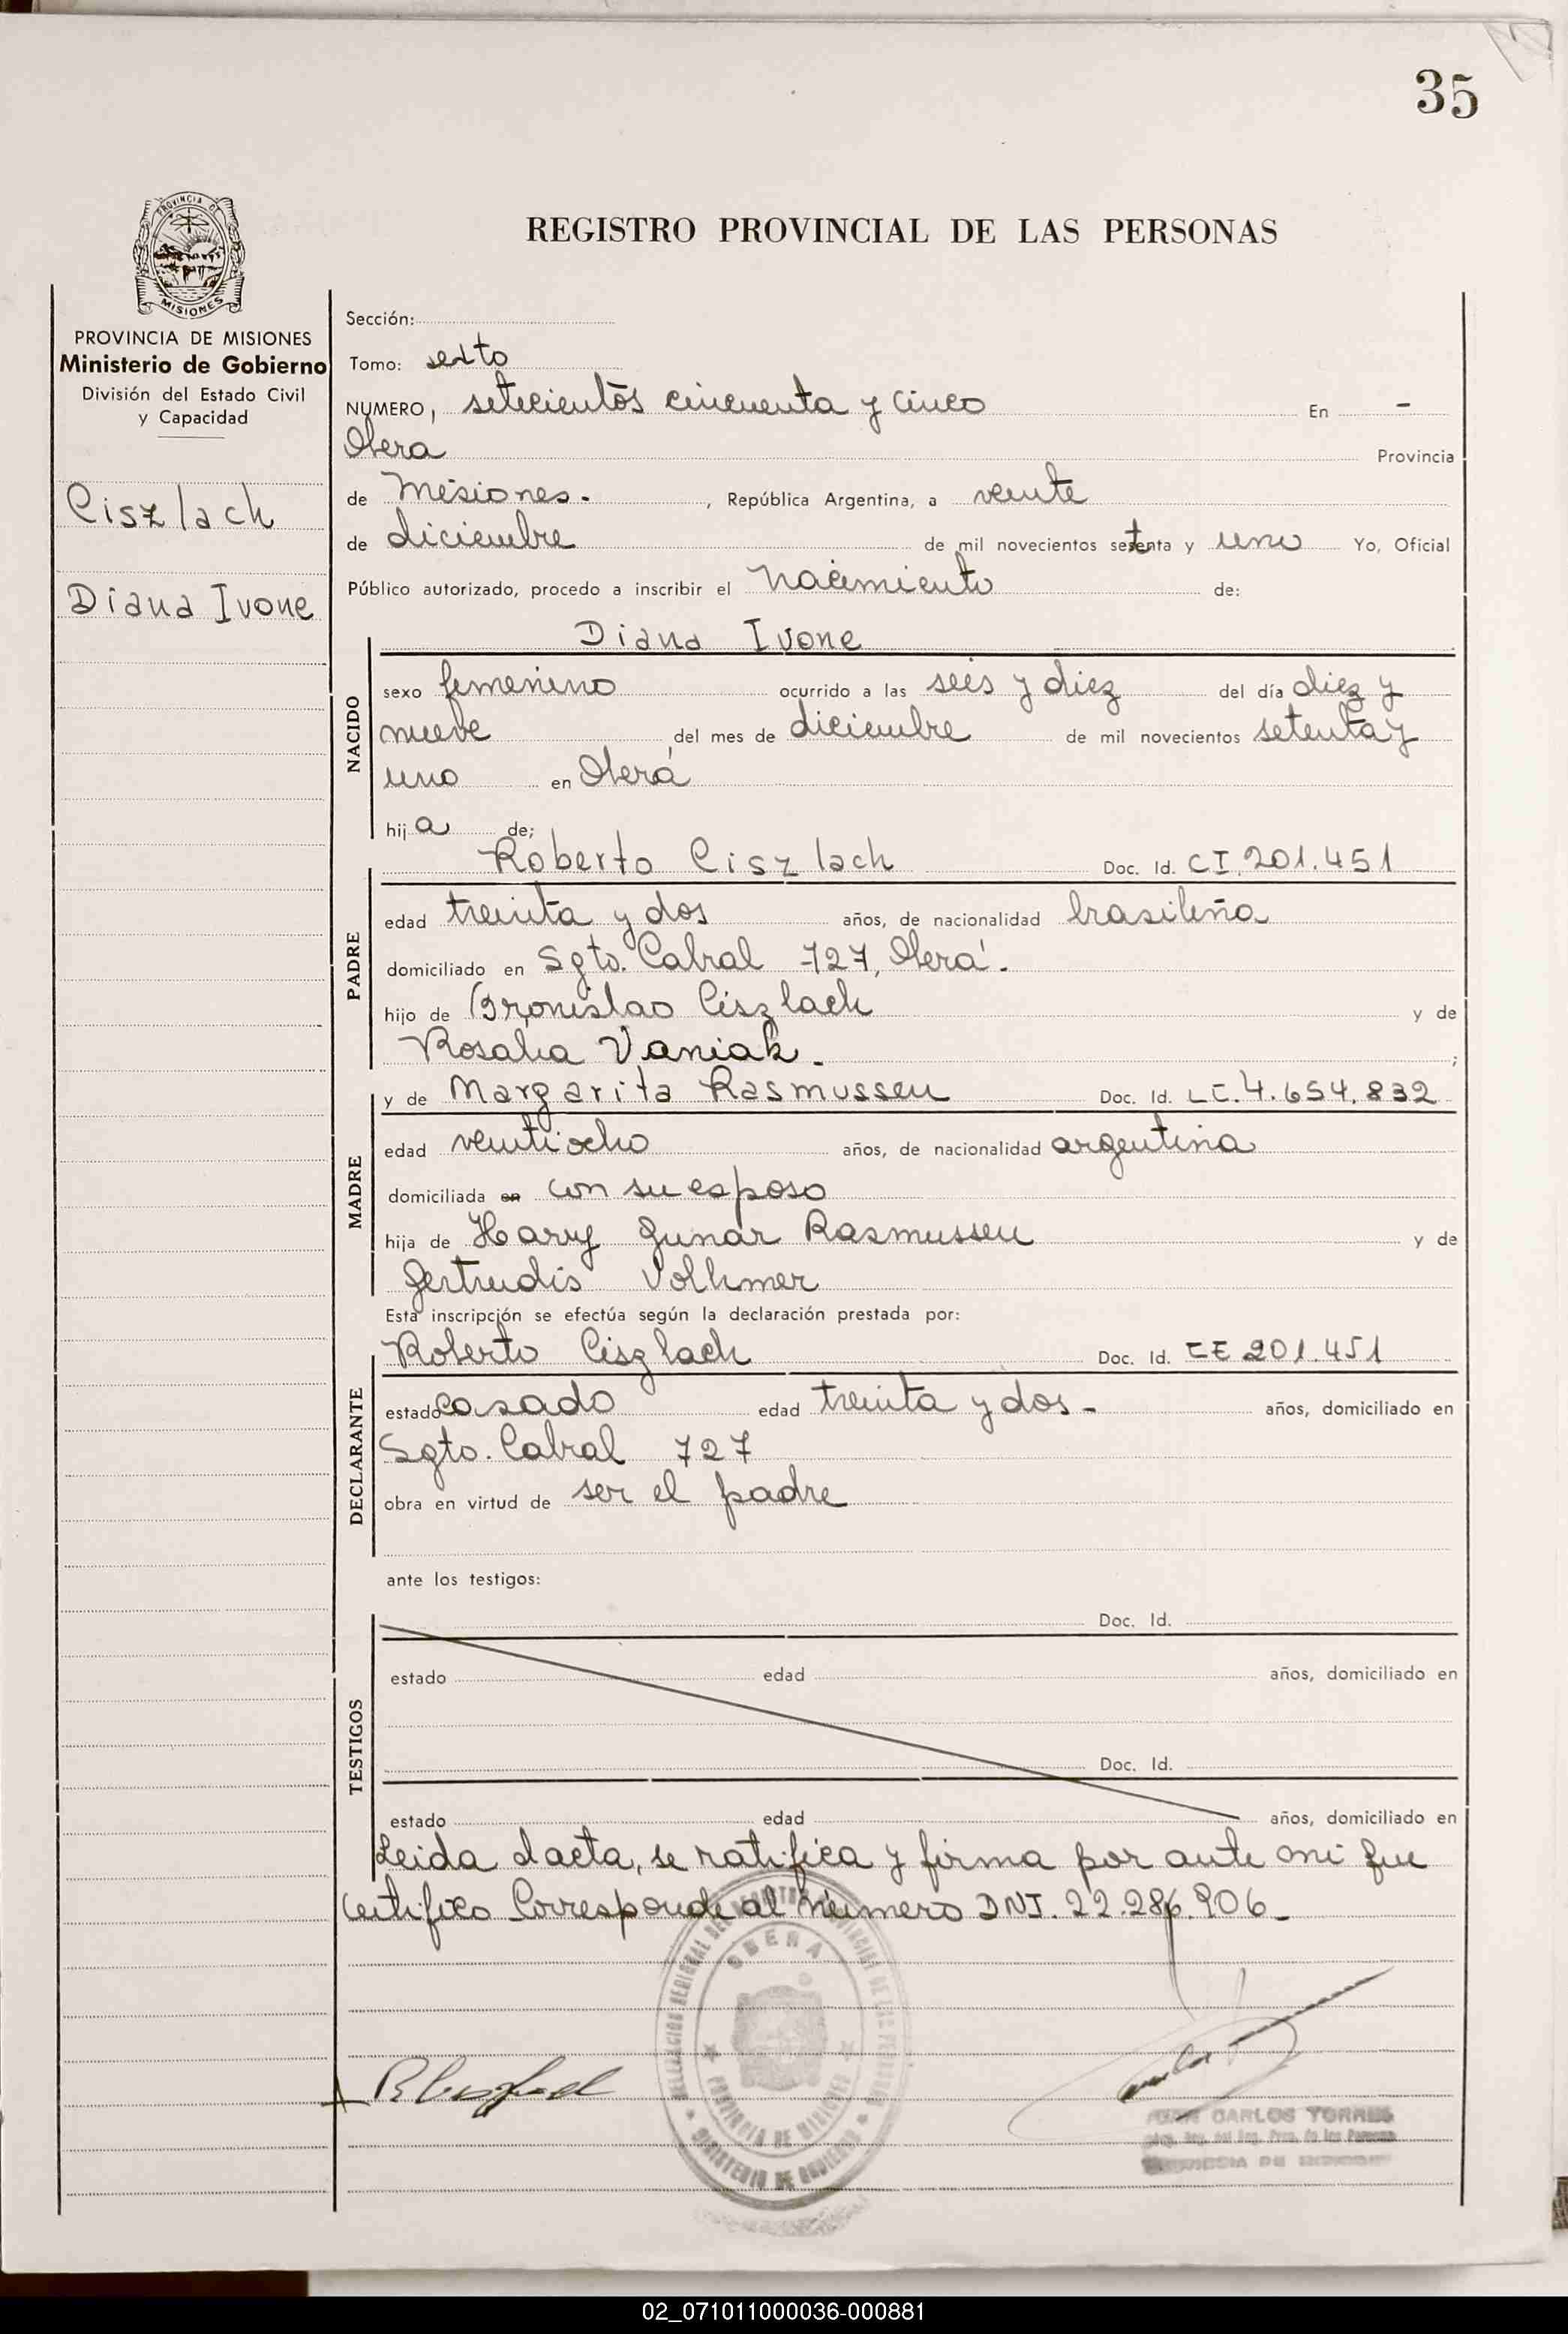 35
PROVINCIA DE
MISIONES
REGISTRO PROVINCIAL DE LAS PERSONAS
PROVINCIA DE MISIONES
Ministerio de Gobierno
División del Estado Civil
y Capacidad
Ciszlach
Diana Ivone
Sección:
Tomo: sexto
NUMERO, setecientos cincuenta y cinco En -
Obera Provincia
de Misiones. , República Argentina, a veinte
de diciembre de mil novecientos setenta y uno Yo, Oficial
Público autorizado, procedo a inscribir el nacimiento de:
Diana Ivone
NACIDO
sexo femenino ocurrido a las seis y diez del día diez y
nueve del mes de diciembre de mil novecientos setenta y
uno en Oberá
hija de;
Roberto Ciszlach Doc. Id. CI. 201.451
PADRE
edad treinta y dos años, de nacionalidad brasileña
domiciliado en Sgto. Cabral 727, Oberá.
hijo de Bronislao Ciszlach y de
Rosalia Vaniak. ;
y de Margarita Rasmussen Doc. Id. LC. 4.654.832
MADRE
edad veintiocho años, de nacionalidad argentina
domiciliada en con su esposo
hija de Harry Gunar Rasmussen y de
Gertrudis Volhmer
Esta inscripción se efectúa según la declaración prestada por:
Roberto Ciszlach Doc. Id. 201.451
DECLARANTE
estado casado edad treinta y dos - años, domiciliado en
Sgto. Cabral 727
obra en virtud de ser el padre
ante los testigos:
Doc. Id.
TESTIGOS
estado edad años, domiciliado en
Doc. Id.
estado edad años, domiciliado en
Leida el acta, se ratifica y firma por ante mi que
certifico Corresponde al número DNI. 22.286.906-
OBERA
PROVINCIA DE MISIONES
MINISTERIO DE GOBIERNO
JUAN CARLOS TORRES
02_071011000036-000881